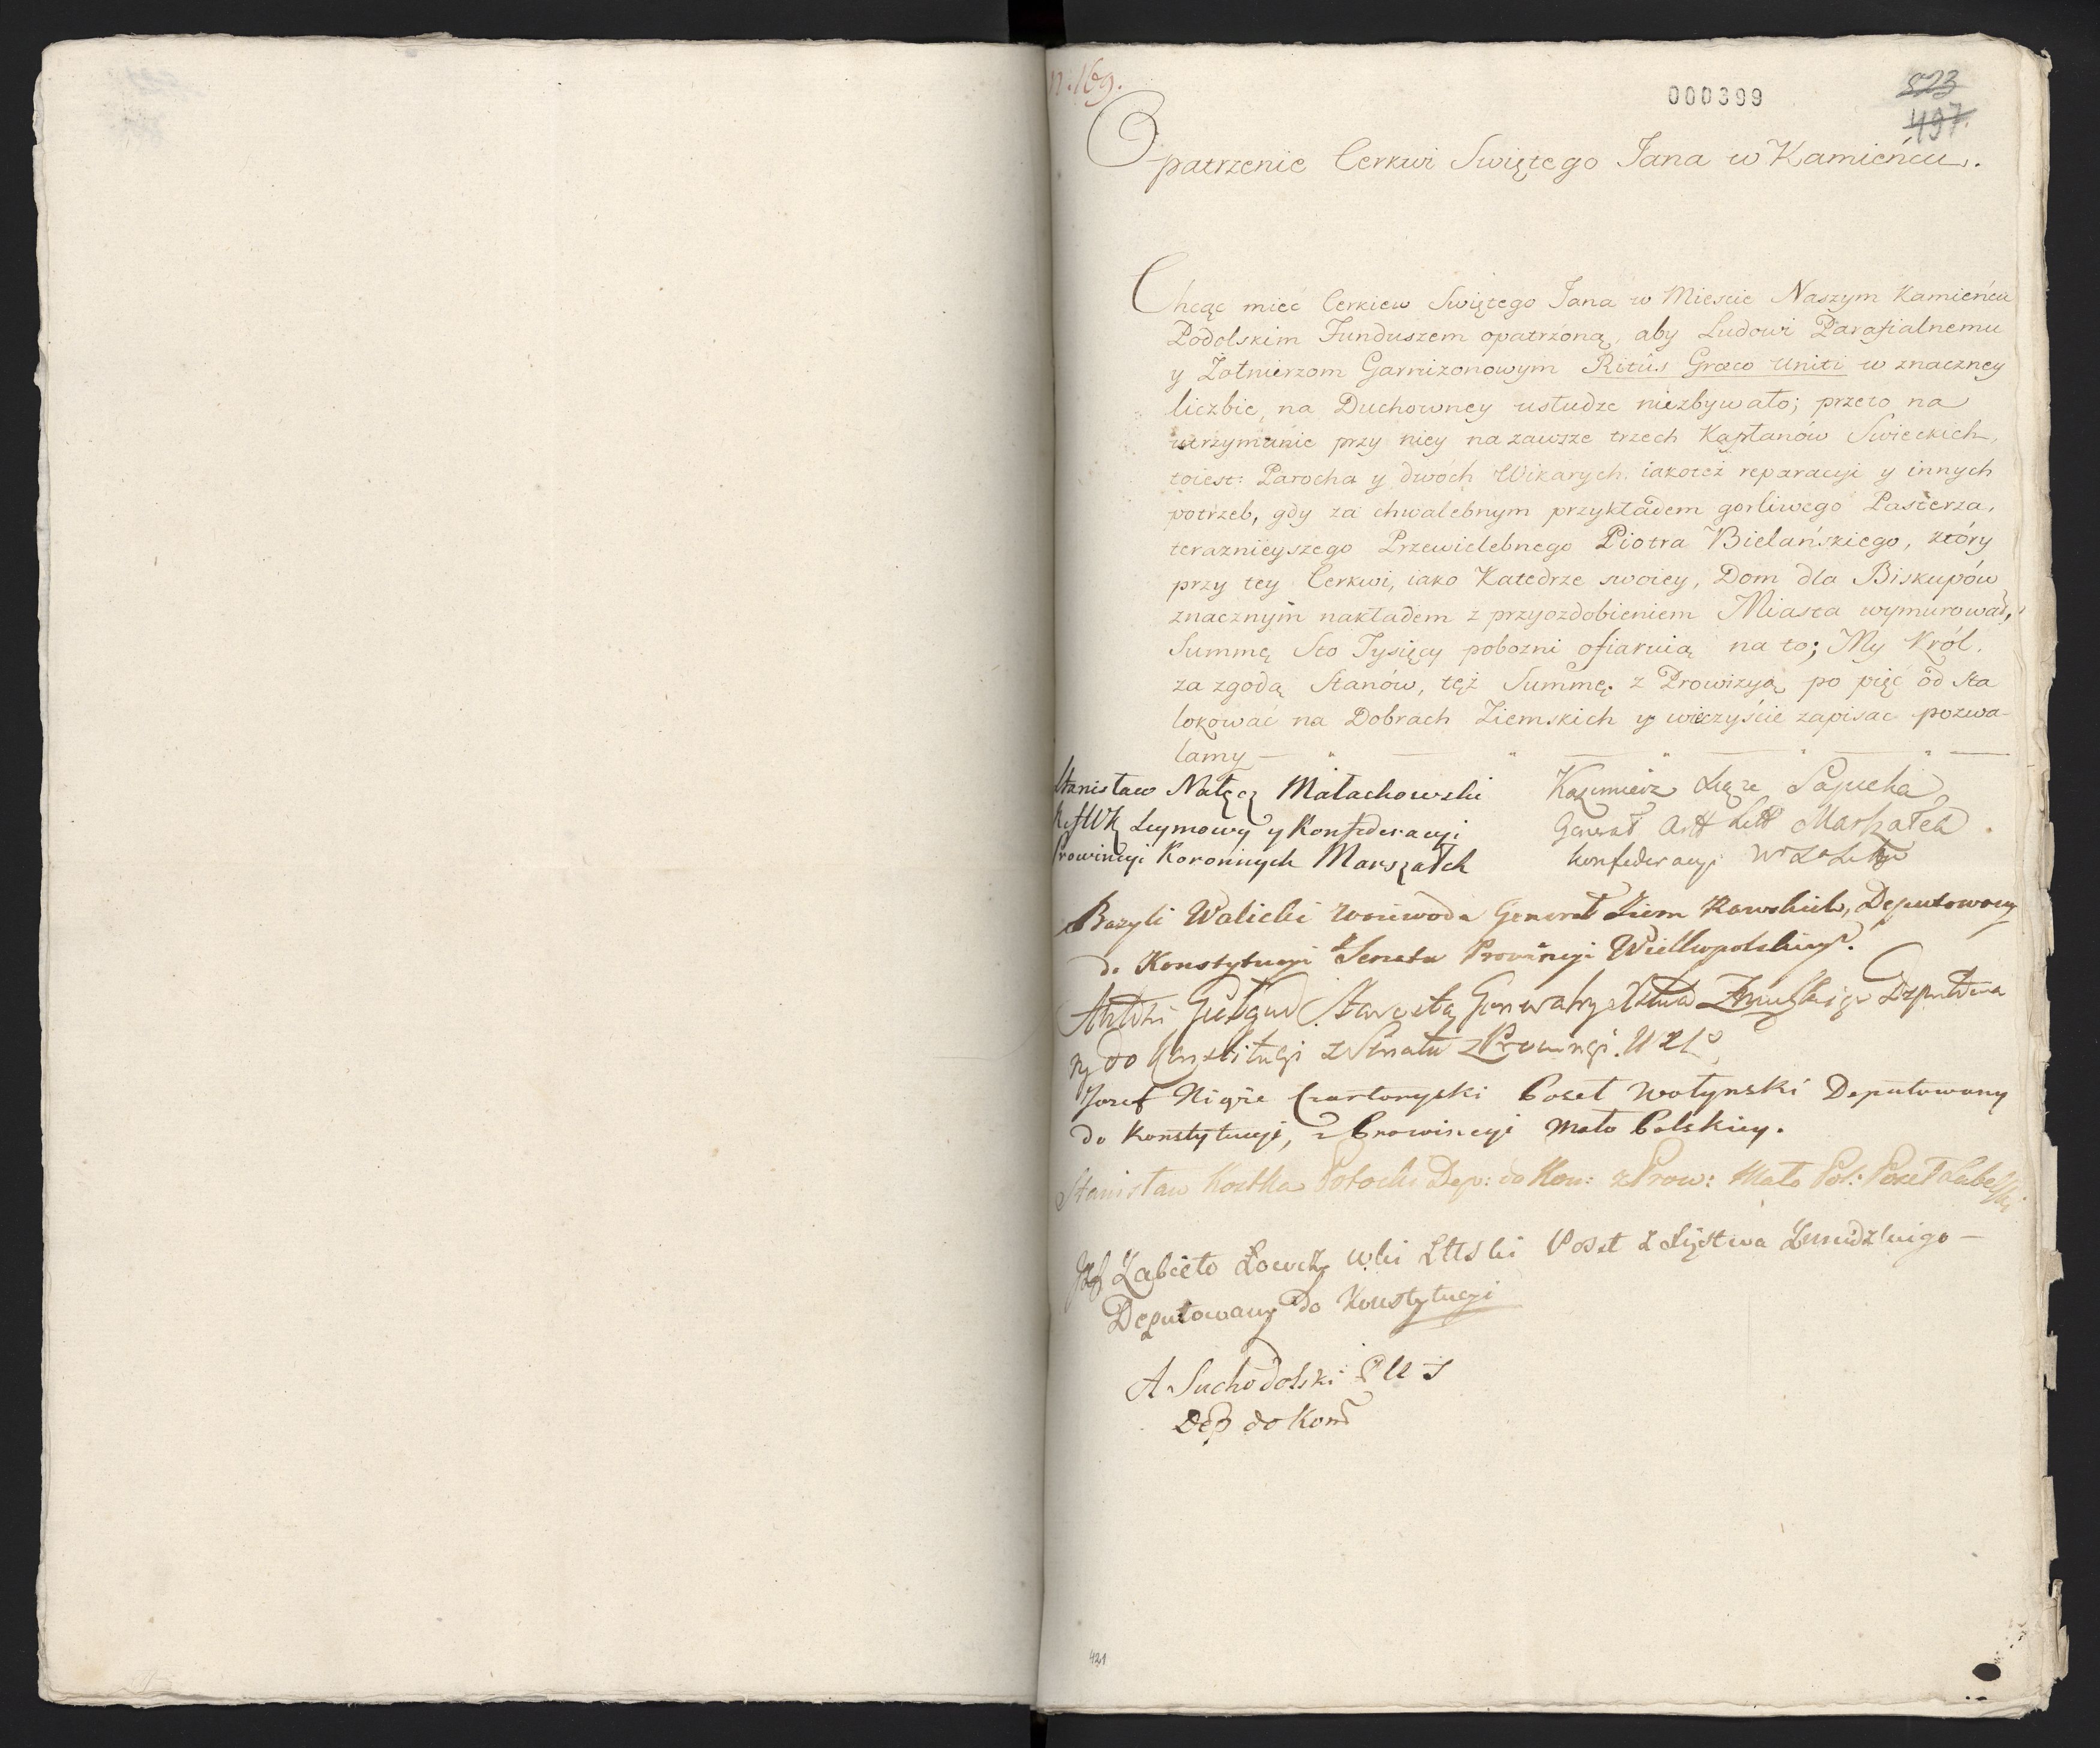 n. 169.
000399
523
497.
Opatrzenie Cerkwi Swiętego Jana w Kamieńcu.
Chcąc mieć Cerkiew Swiętego Jana w Mieście Naszym Kamieńcu
Podolskim Funduszem opatrzoną, aby Ludowi Parafialnemu
y Żołnierzom Garnizonowym Ritûs Græco Uniti w znaczney
liczbie, na Duchowney usłudze niezbywało; przeto na
utrzymanie przy niey na zawsze trzech Kapłanów Swieckich,
toiest: Parocha y dwóch Wikarych, iakoteż reparacyi y innych
potrzeb, gdy za chwalebnym przykładem gorliwego Pasterza,
teraznieyszego Przewielebnego Piotra Bielańskiego, który
przy tey Cerkwi, iako Katedrze swoiey, Dom dla Biskupów
znacznym nakładem z przyozdobieniem Miasta wymurował,
Summę Sto Tysięcy pobożni ofiaruią na to; My Król,
za zgodą Stanów, tęż Summę z Prowizyą po pięć od sta
lokować na Dobrach Ziemskich y wieczyście zapisac pozwa-
lamy
Stanisław Nałęcz Małachowski
R. WK Seymowy y Konfederacyi
Prowincyi Koronnych Marszałek
Kazimierz Xiąże Sapieha
Generał Artt Litt Marszałek
Konfederacyi W X Litt
Bazyli Walicki Woiewoda Generał Ziem Rawskich, Deputowany
do Konstytucyi z Senatu Prowincyi Wielkopolskiey.
Antoni Giełgud Starosta Generalny Xtwa Żmudzkiego Deputowa
ny do Konstitucyi z Senatu z Prowincyi W X L
Jozef Xiąże Czartoryski Poseł Wołynski Deputowany
do Konstytucyi, z Prowincyi Mało Polskiey.
Stanisław Kostka Potocki Dep: do Kon: z Prow: Mało Pol: Poseł Lubelski
Jzf Zabiełło Łowczy Wki Littski Poseł z Xięstwa Żmudzkiego
Deputowany do Konstytucyi
A Suchodolski P C S
Dep do Konst
421